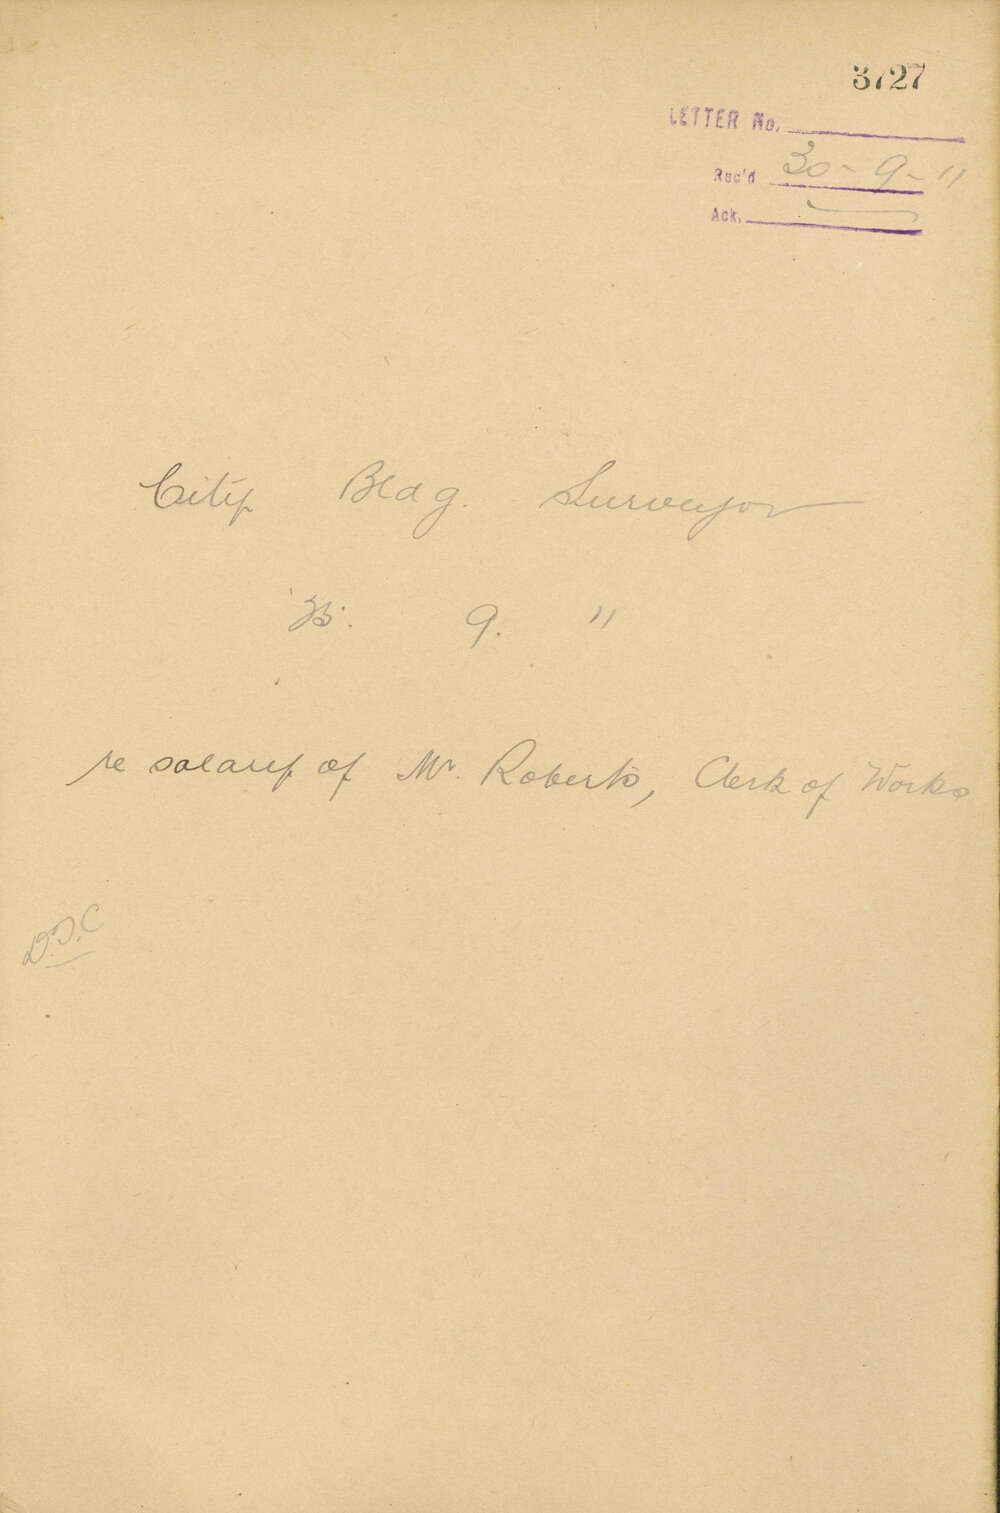 3727
LETTER No.
Rec'd 30-9-11
Ack.
City Bldg. Surveyor
9. 11
re salary of Mr. Roberts, Clerk of Works